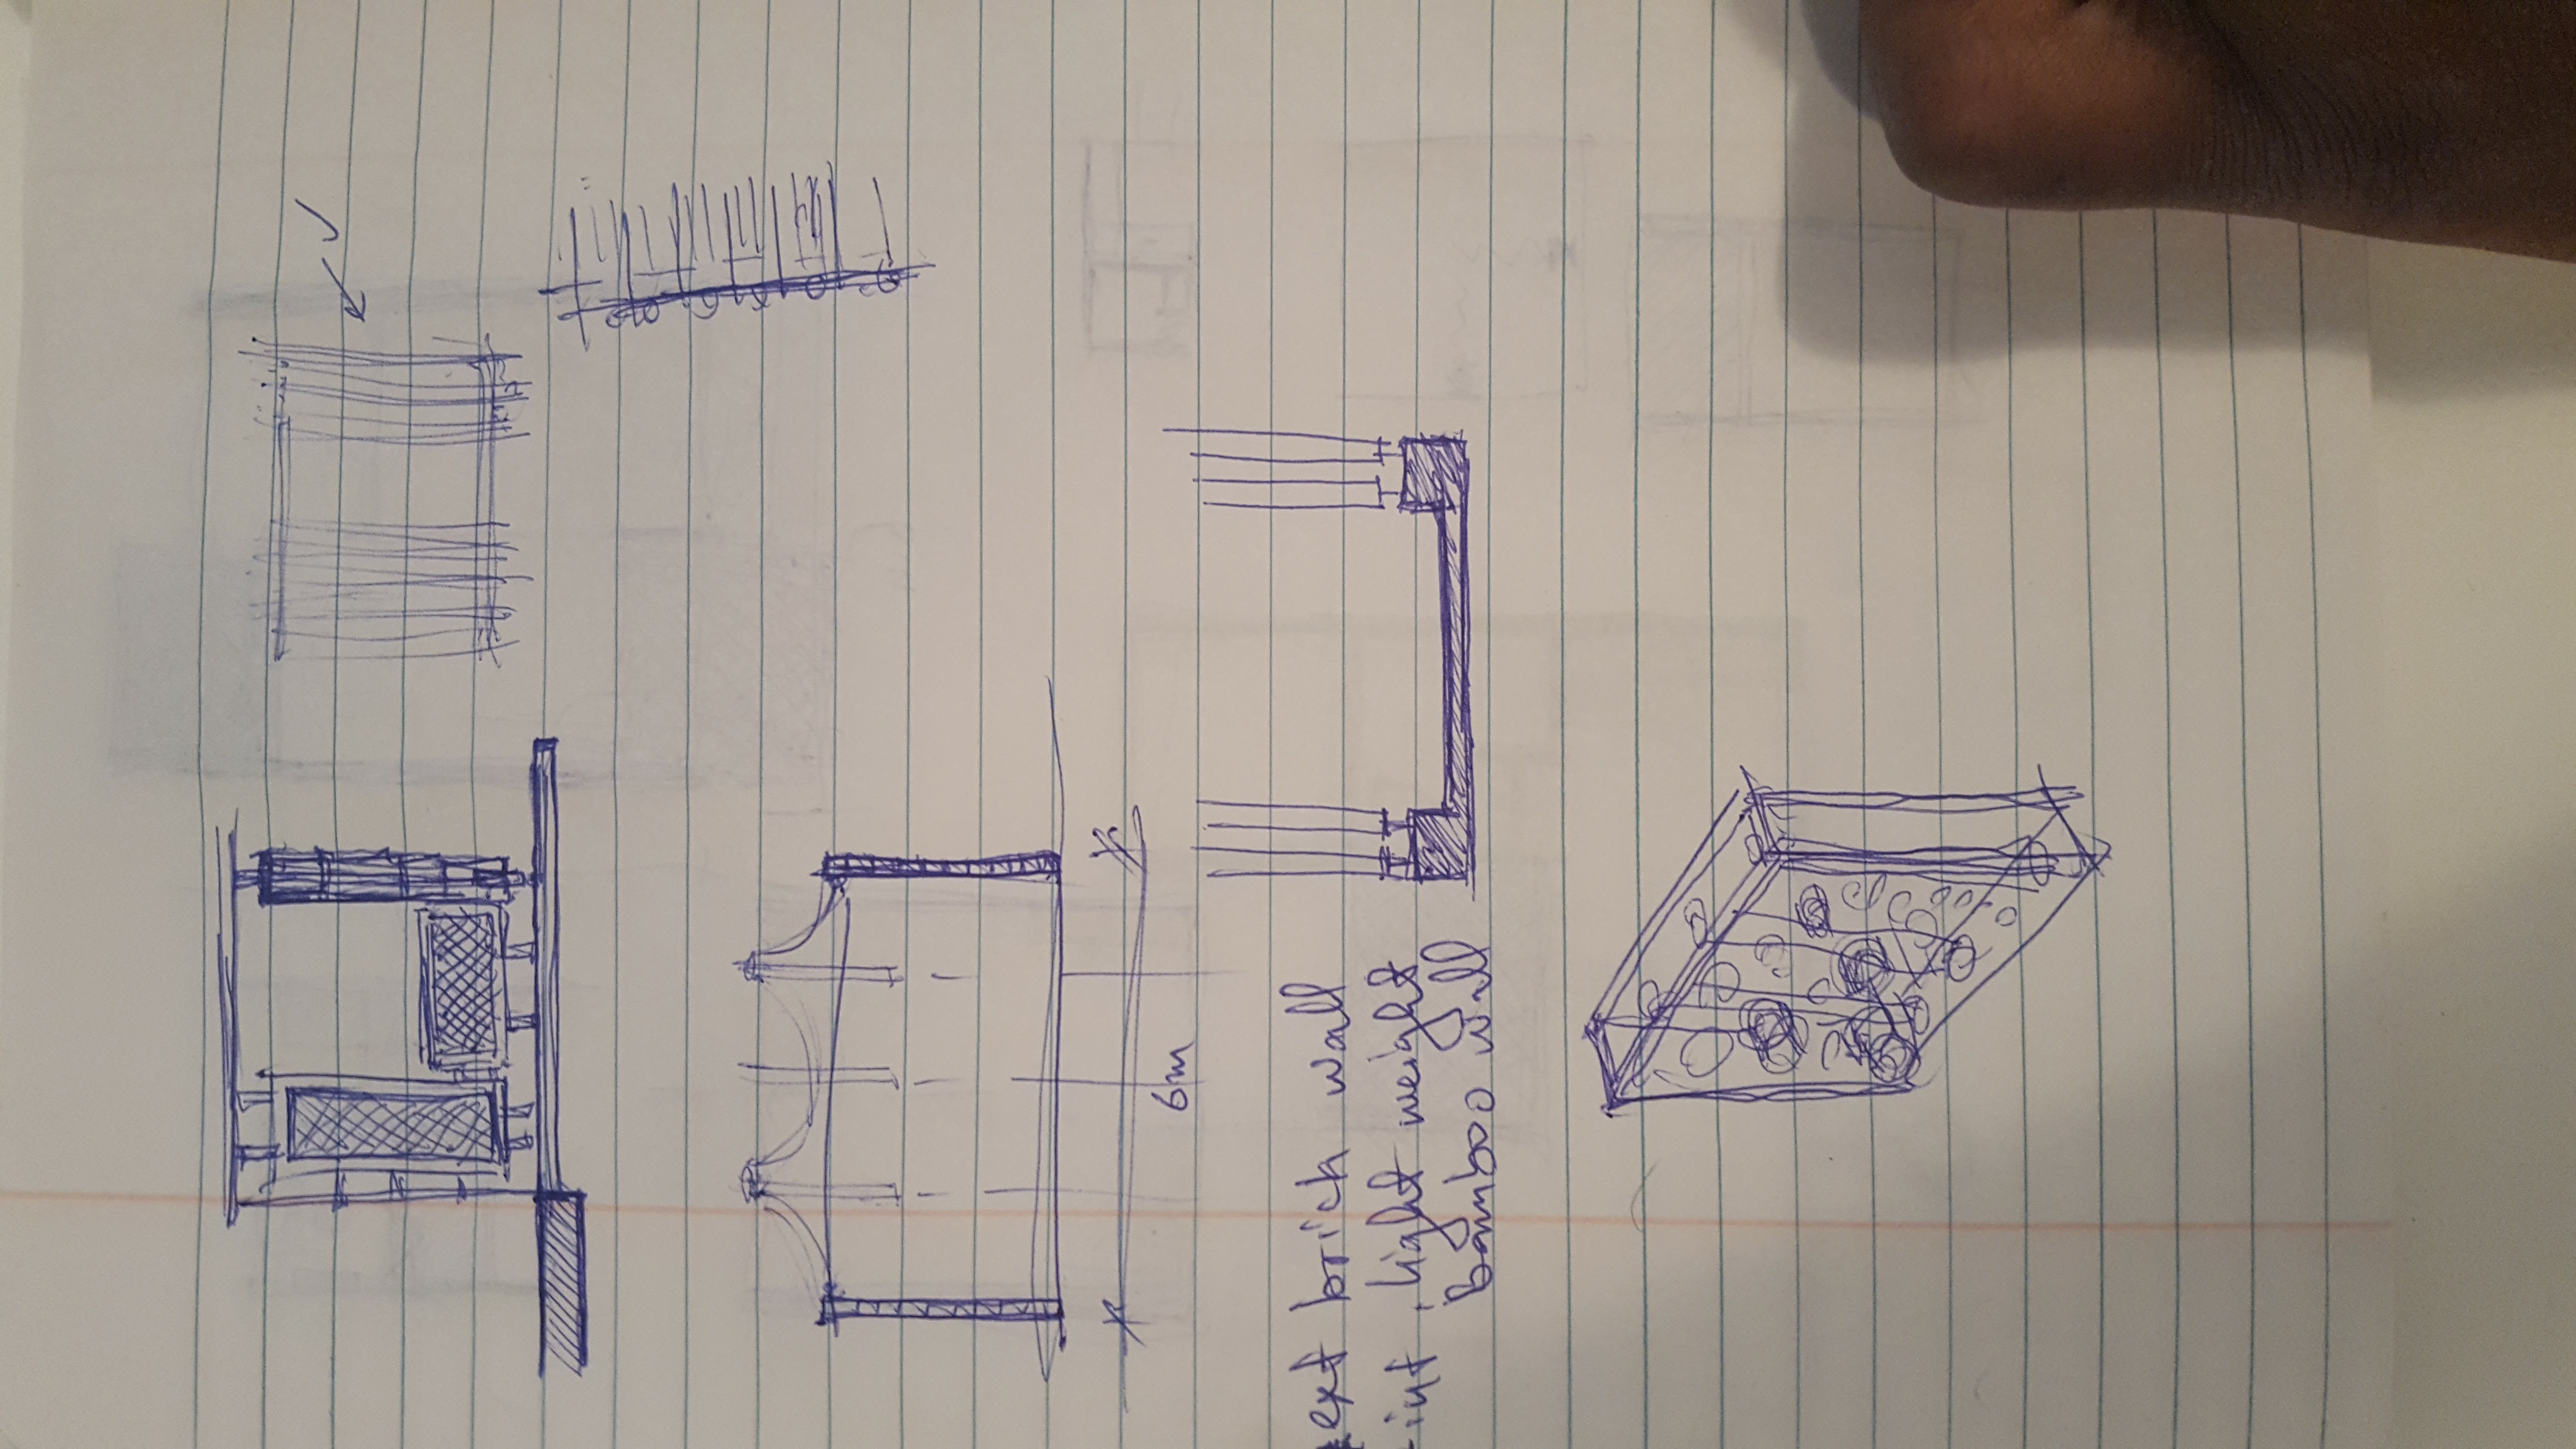 6m
ext brick wall
- int . light weight
bamboo wall